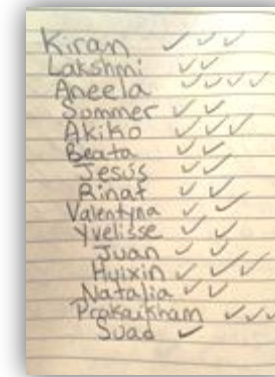 Kiran ✓ ✓ ✓
Lakshmi ✓ ✓
Aneela ✓ ✓ ✓ ✓
Sommer ✓ ✓
Akiko ✓ ✓ ✓
Beata ✓ ✓
Jesús ✓ ✓
Rinat ✓ ✓
Valentyna ✓ ✓
Yvelisse ✓ ✓
Juan ✓ ✓
Huixin ✓ ✓ ✓
Natalia ✓ ✓
Prokaikham ✓ ✓ ✓
Suad ✓